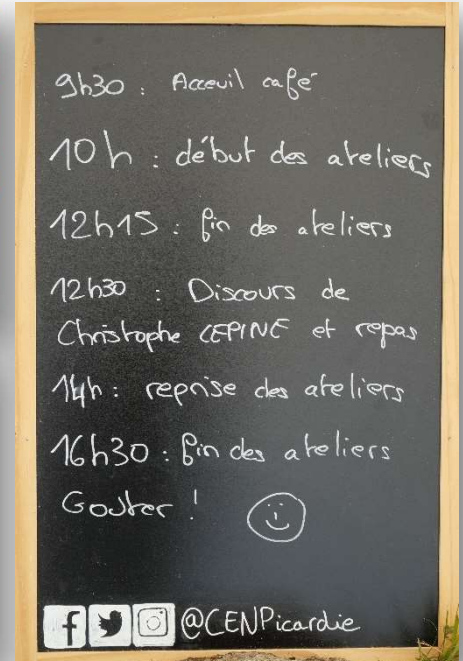 9h30 : Acceuil café
10h : début des ateliers
12h15 : fin des ateliers
12h30 : Discours de
Christophe LEPINE et repas
14h : reprise des ateliers
16h30 : fin des ateliers
Gouter !
@CENPicardie